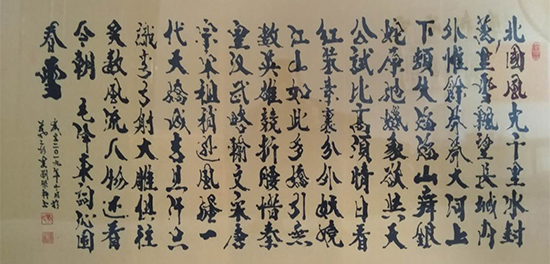 北國風光千里冰封
萬里雪飄望長城內
外惟餘莽莽大河上
下頓失滔滔山舞銀
蛇原馳蠟象欲與天
公試比高須晴日看
紅裝素裹分外妖嬈
江山如此多嬌引無
數英雄競折腰惜秦
皇漢武略輸文采唐
宗宋祖稍遜風騷一
代天驕成吉思汗只
識彎弓射大雕俱往
矣數風流人物還看
今朝 毛澤東詞沁園
春雪
二〇一九年十月